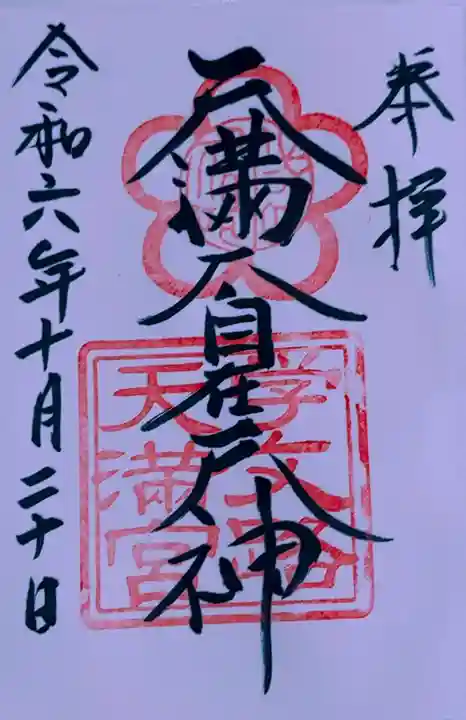 奉拝
天満大自在天神
学文路
天満宮
令和六年十月二十日